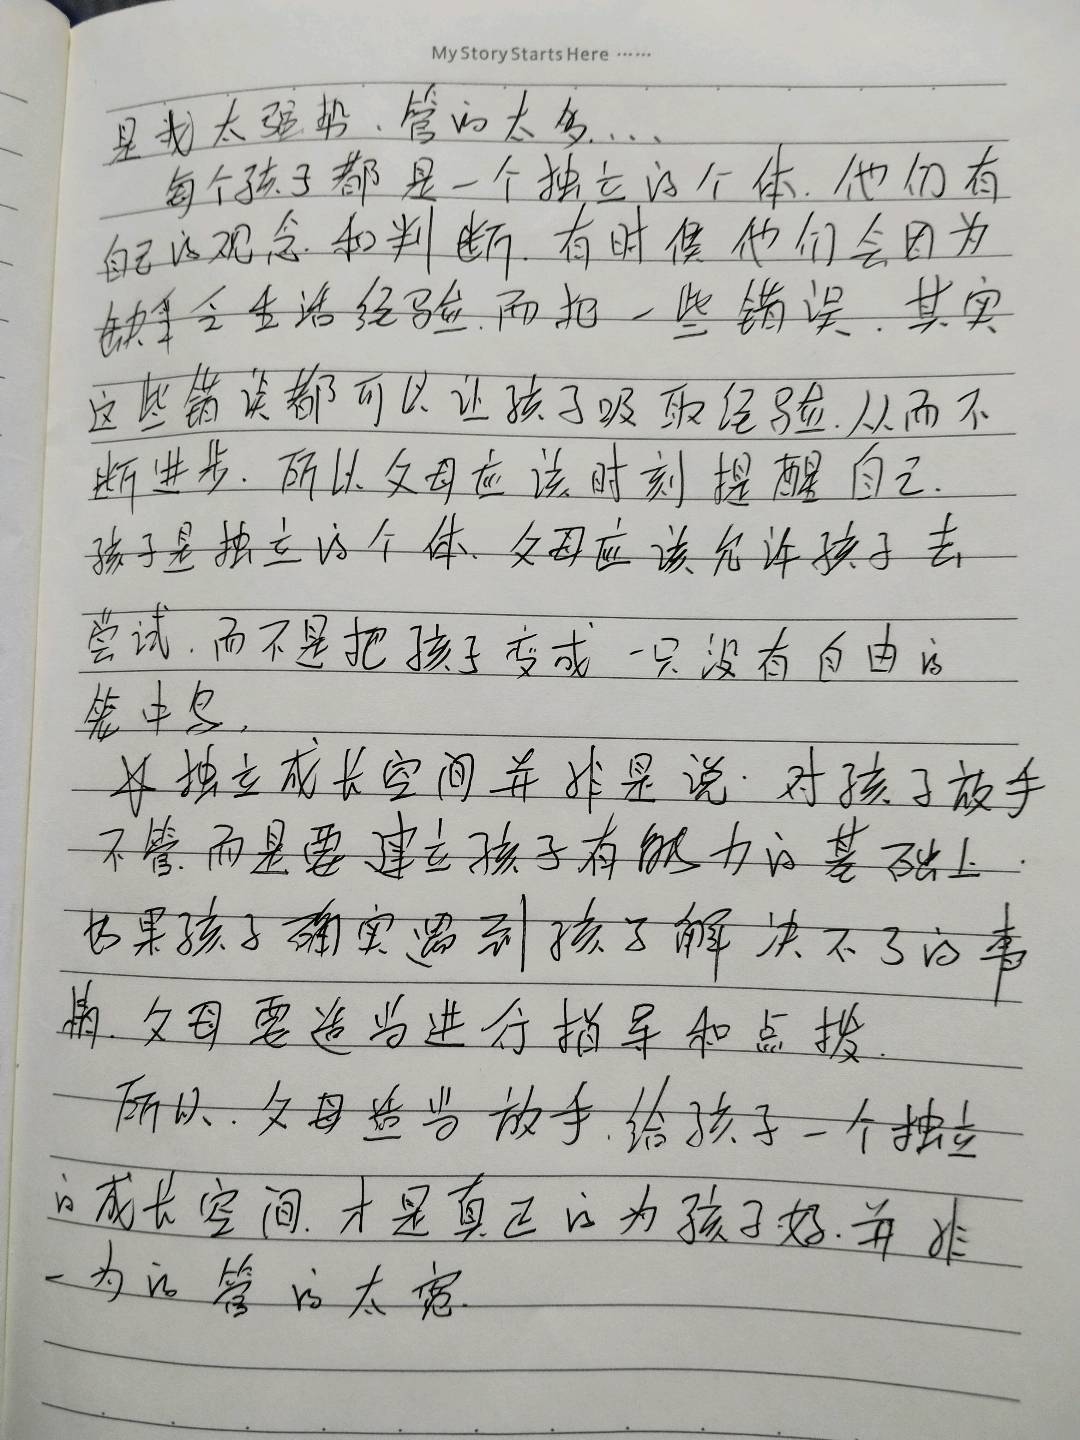 My Story Starts Here ……
是我太强势、管的太多....
每个孩子都是一个独立的个体.他们有
自己的观念.和判断.有时候他们会因为
缺乏生活经验.而犯一些错误.其实
这些错误都可以让孩子吸取经验.从而不
断进步.所以父母应该时刻提醒自己.
孩子是独立的个体、父母应该允许孩子去
尝试.而不是把孩子变成一只没有自由的
笼中鸟.
独立成长空间并非是说.对孩子放手
不管.而是要建立孩子有能力的基础上.
如果孩子确实遇到孩子解决不了的事
情.父母要适当进行指导和点拨.
所以.父母适当放手.给孩子一个独立
的成长空间.才是真正的为孩子好.并非
一为的管的太宽.